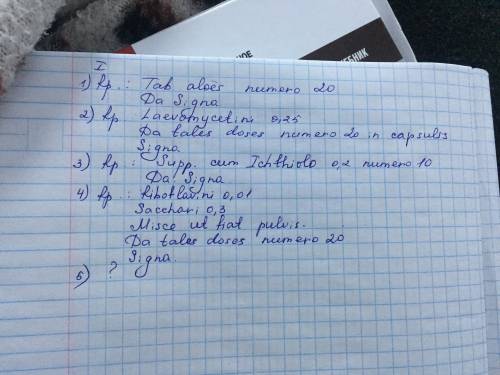 НОЕ
ЕБНИК
I
1) Rp.: Tab aloës numero 20
Da Signa
2) Rp. Laevomycetini 0,25
Da tales doses numero 20 in capsulis
Signa.
3) Rp : Supp. cum Ichthiolo 0,2 numero 10
Da. Signa
4) Rp.: Riboflavini 0,01
Sacchari 0,3
Misce ut fiat pulvis.
Da tales doses numero 20
Signa.
5) ?